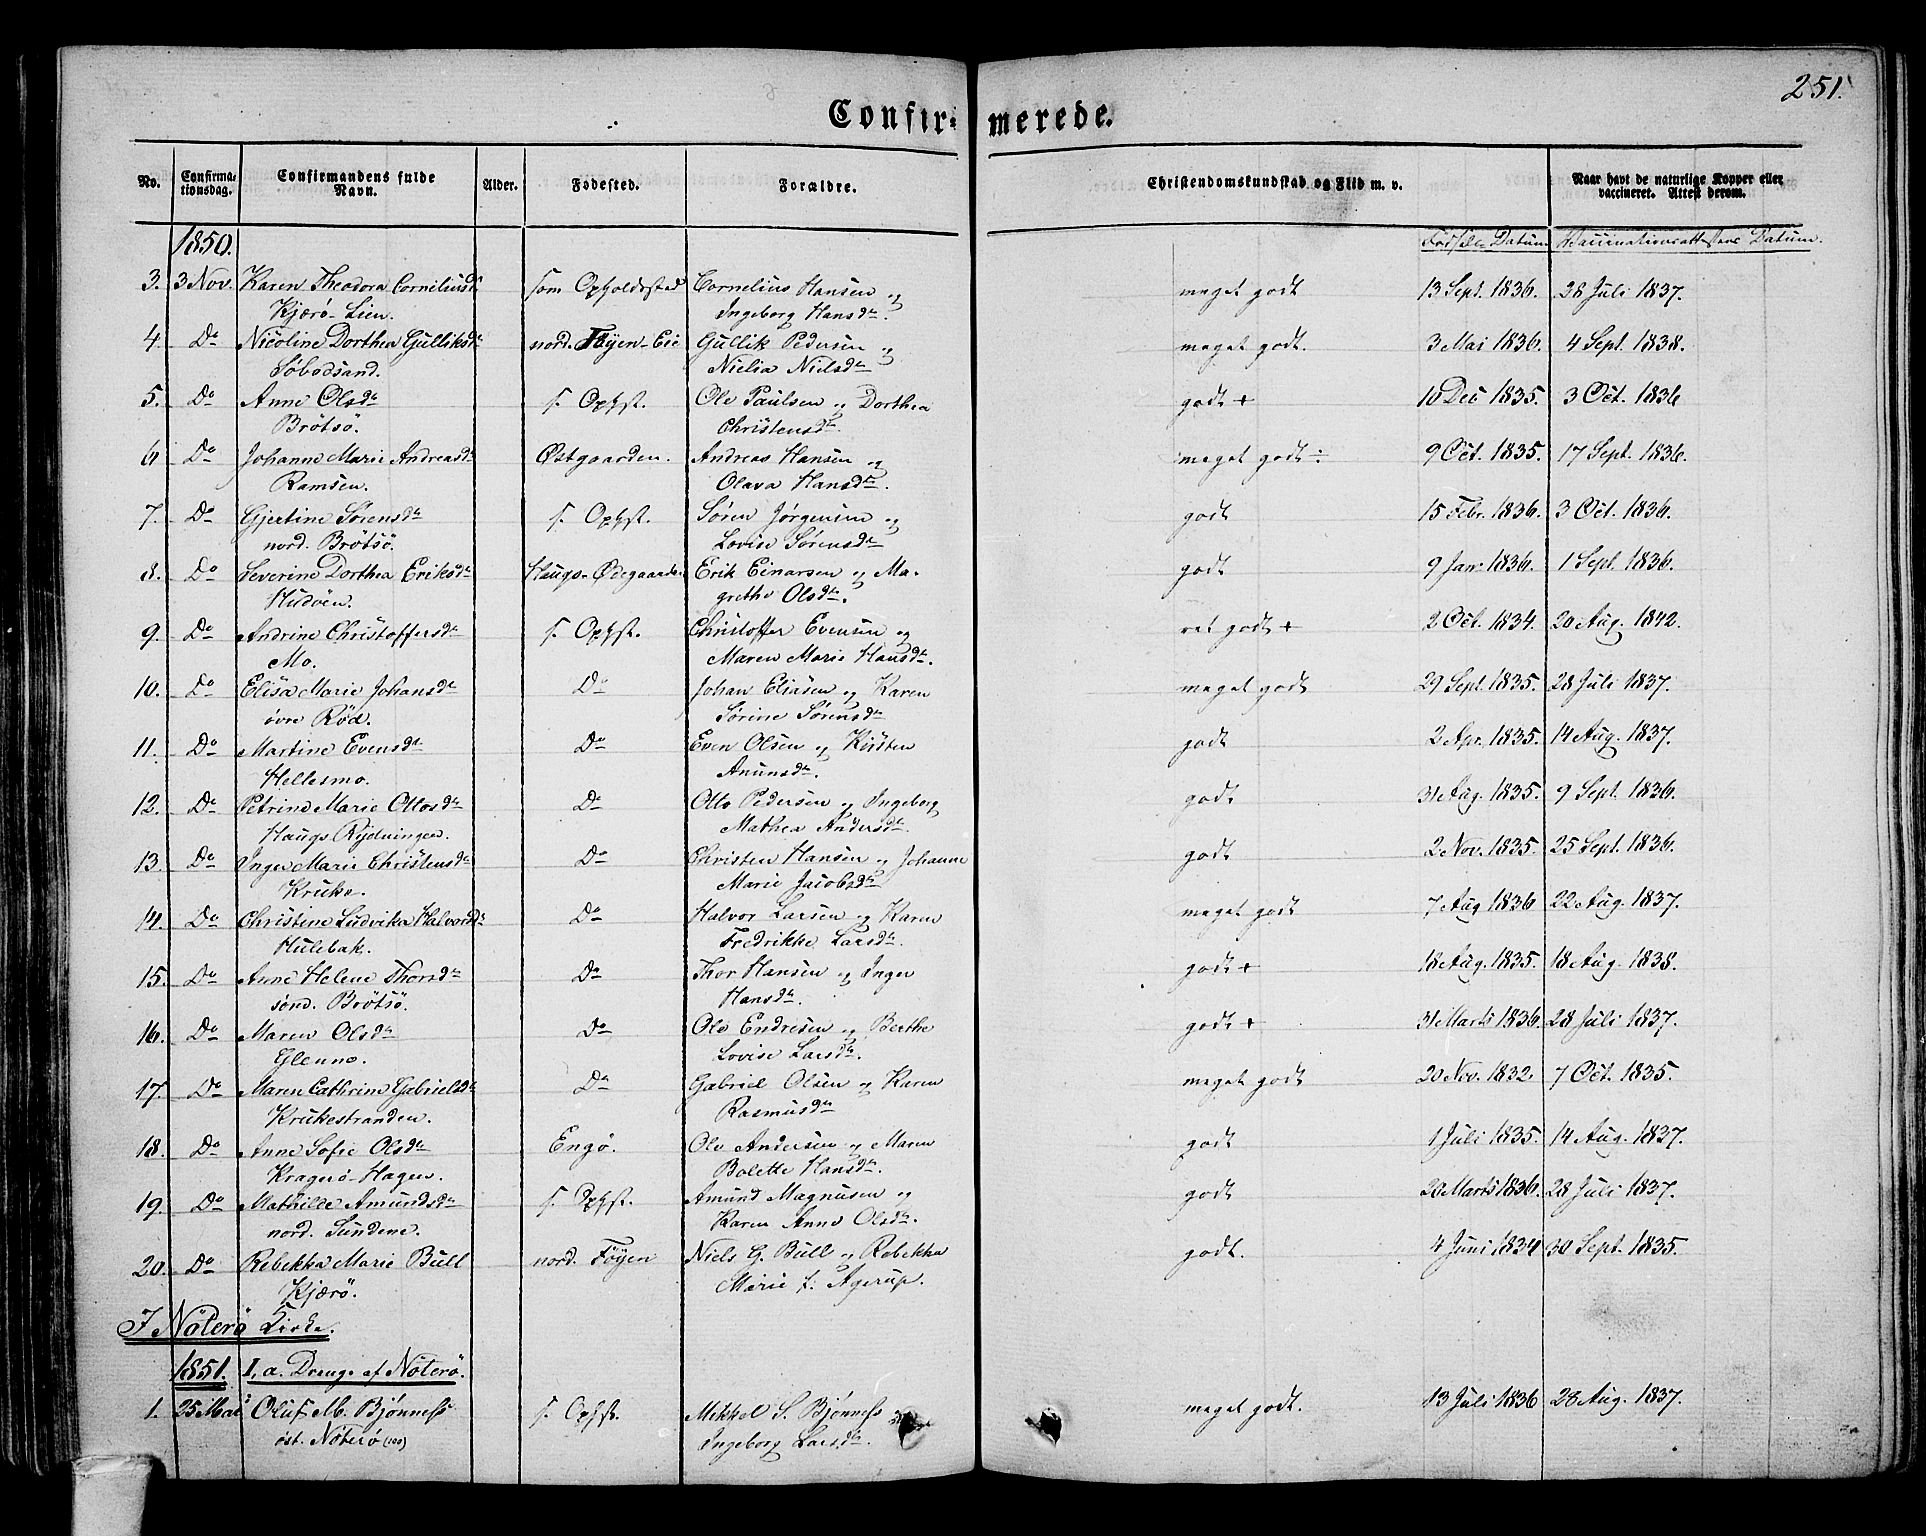 251.
Confir- merede.
No. Confirma-tionsdag. Confirmandens fulde Navn. Alder. Fødested. Forældre. Christendomskundskab og Flid m. v. Naar havt de naturlige Kopper eller vaccineret. Attest derom.
1850. Fødsels Datum Vaccinationsattestens Datum.
3. 3 Nov. Karen Theodora Corneliusd. som Opholdssted Cornelius Hansen og meget godt 13 Sept. 1836. 28 Juli 1837.
Kjærö-Lien. Ingeborg Hansdr.
4. Do Nicoline Dorthea Gulliksdr nord. Föyen-Eie Gullik Pedersen og meget godt. 3 Mai 1836. 4 Sept. 1838.
Söbodsand. Nielia Nielsdr
5. Do Anne Olsdr s. Ophst. Ole Paulsen og Dorthea godt + 10 Dec 1835. 3 Oct. 1836
Brötsö. Christensdr.
6 Do Johanne Marie Andreasdr Østgaarden. Andreas Hansen og meget godt ÷ 9 Oct. 1835. 17 Sept. 1836.
Ramsen. Olava Hansdr.
7. Do Gjertine Sörensdr s. Ophst. Sören Jörgensen og godt 15 Febr. 1836. 3 Oct. 1836.
nord. Brötsö. Lovise Sörensdr
8. Do Severine Dorthea Eriksdr Haugs-Ødegaarde. Erik Einarsen og Ma- godt 9 Jan. 1836. 1 Sept. 1836.
Hudöen. grethe Olsdr.
9. Do Andrine Christoffersdr s. Ophst. Christoffer Evensen og ret godt + 2 Oct. 1834. 20 Aug. 1842.
Mo. Maren Marie Hansdr.
10. Do Elisa Marie Johansdr Do Johan Eliasen og Karen meget godt 29 Sept. 1835. 28 Juli 1837.
övre Röd. Sörine Sörensdr
11. Do Martine Evensdr. Do Even Olsen og Kirsten godt 2 Apr. 1835. 14 Aug. 1837.
Hellesmo. Anunsdr.
12. Do Petrine Marie Ottosdr Do Otto Pedersen og Ingeborg godt 31 Aug. 1835. 9 Sept. 1836.
Haugs Rydningen. Mathea Andersdr.
13. Do Inger Marie Christensdr Do Christen Hansen og Johanne godt 2 Nov. 1835. 25 Sept. 1836.
Kruke. Marie Jacobsdr
14. Do Christine Ludvika Halvorsdr Do Halvor Larsen og Karen meget godt 7 Aug 1836 22 Aug. 1837.
Hulebak. Fredrikke Larsdr.
15. Do Anne Helene Thorsdr Do Thor Hansen og Inger godt + 18 Aug. 1835. 18 Aug. 1838.
sönd. Brötsö. Hansdr.
16. Do Maren Olsdr Do Ole Endresen og Berthe godt + 31 Marts 1836. 28 Juli 1837.
Glenne. Lovise Larsdr.
17. Do Maren Cathrine Gabrielsdr Do Gabriel Olsen og Karen meget godt 20 Nov. 1832. 7 Oct. 1835.
Krukestranden. Rasmusdr
18. Do Anne Sofie Olsdr Engö. Ole Andersen og Maren godt 1 Juli 1835. 14 Aug. 1837.
Kragerö-Hagen. Bolette Hansdr.
19. Do Mathilde Amundsdr s. Ophst. Amund Magnusen og godt 22 Marts 1836. 28 Juli 1837.
nord. Sundene. Karen Anne Olsdr.
20. Do Rebekka Marie Bull nord. Föyen Niels G. Bull og Rebekka godt. 4 Juni 1834 30 Sept. 1835.
Kjærö. Marie f: Agerup.
I Nöterö Kirke.
1851. I, a. Drenge af Nöterö.
1. 25 Mai Oluf M. Bjönness s. Ophst. Mikkel S. Bjönness og meget godt. 13 Juli 1836 28 Aug. 1837.
öst. Nöterö (100) Ingeborg Larsdr.